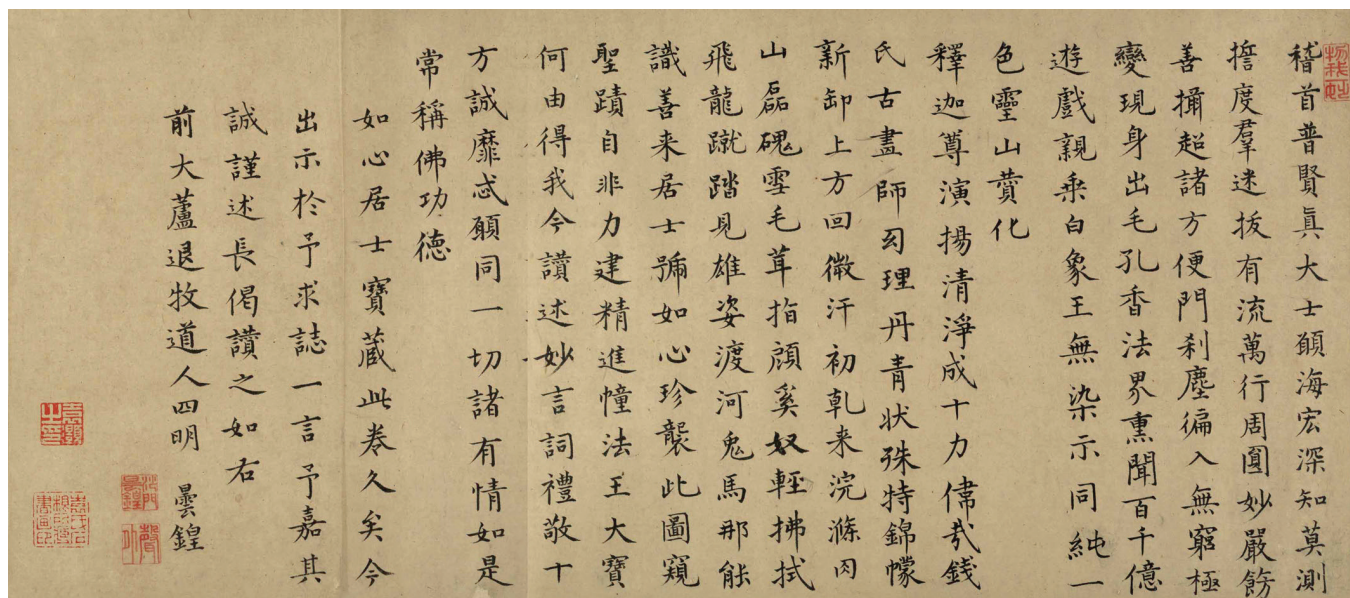 稽首普賢真大士願海宏深知莫測
擔度羣迷拔有流萬行周圓妙嚴飭
善攝超諸方便門刹塵徧入無窮極
變現身出毛孔香法界熏聞百千億
遊戲親乘白象王無染示同純一
色靈山賛化
釋迦尊演揚清淨成十力偉哉錢
氏古畫師幻理丹青状殊特錦幪
新卸上方回微汗初乹来浣滌因
山磊磈雪毛茸指顧奚奴輕拂拭
飛龍蹴踏見雄姿渡河兔馬那能
識善来居士號如心珍襲此圖窺
聖蹟自非力建精進幢法王大寶
何由得我今讃述妙言詞禮敬十
方誠靡忒願同一切諸有情如是
常稱佛功德
如心居士寶蔵此卷久矣今
出示於予求誌一言予嘉其
誠謹述長偈讃之如右
前大蘆退牧道人四明 曇鍠